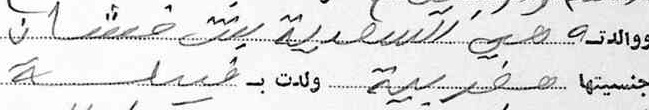 ووالدته هي السعدية بنت خشان
جنسيتها مغربية ولدت بـ قبيلة